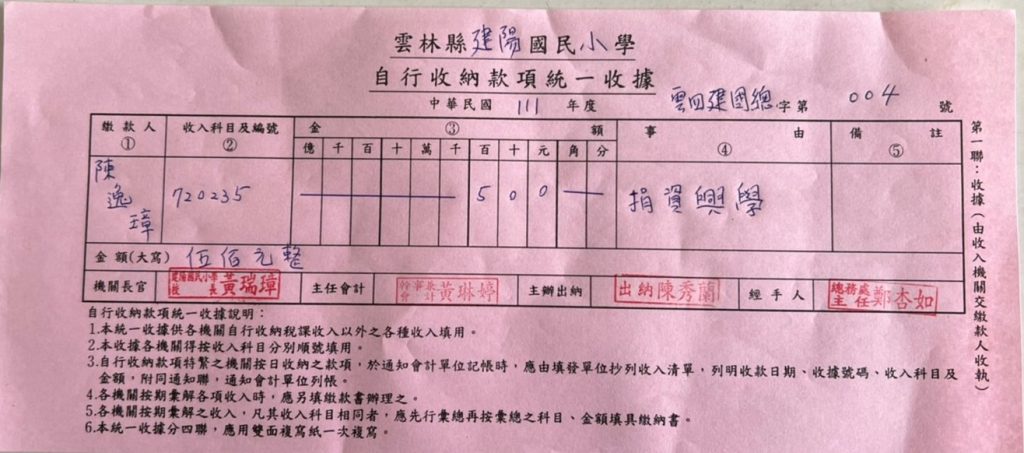 雲林縣建陽國民小學
自行收納款項統一收據
中華民國 111 年度 雲四建國總字第 004 號
繳款人① 收入科目及編號② 金③額 事由④ 備註⑤
億 千 百 十 萬 千 百 十 元 角 分
陳逸璋 720235 5 0 0 捐資興學
金額(大寫) 伍佰元整
機關長官 建陽國民小學校長黃瑞璋 主任會計 幹事兼會計黃琳婷 主辦出納 出納陳秀蘭 經手人 總務處主任鄭杏如
自行收納款項統一收據說明:
1.本統一收據供各機關自行收納稅課收入以外之各種收入填用。
2.本收據各機關得按收入科目分別順號填用。
3.自行收納款項特繁之機關按日收納之款項,於通知會計單位記帳時,應由填發單位抄列收入清單,列明收款日期、收據號碼、收入科目及
金額,附同通知聯,通知會計單位列帳。
4.各機關按期彙解各項收入時,應另填繳款書辦理之。
5.各機關按期彙解之收入,凡其收入科目相同者,應先行彙總再按彙總之科目、金額填具繳納書。
6.本統一收據分四聯,應用雙面複寫紙一次複寫。
第一聯:收據(由收入機關交繳款人收執)